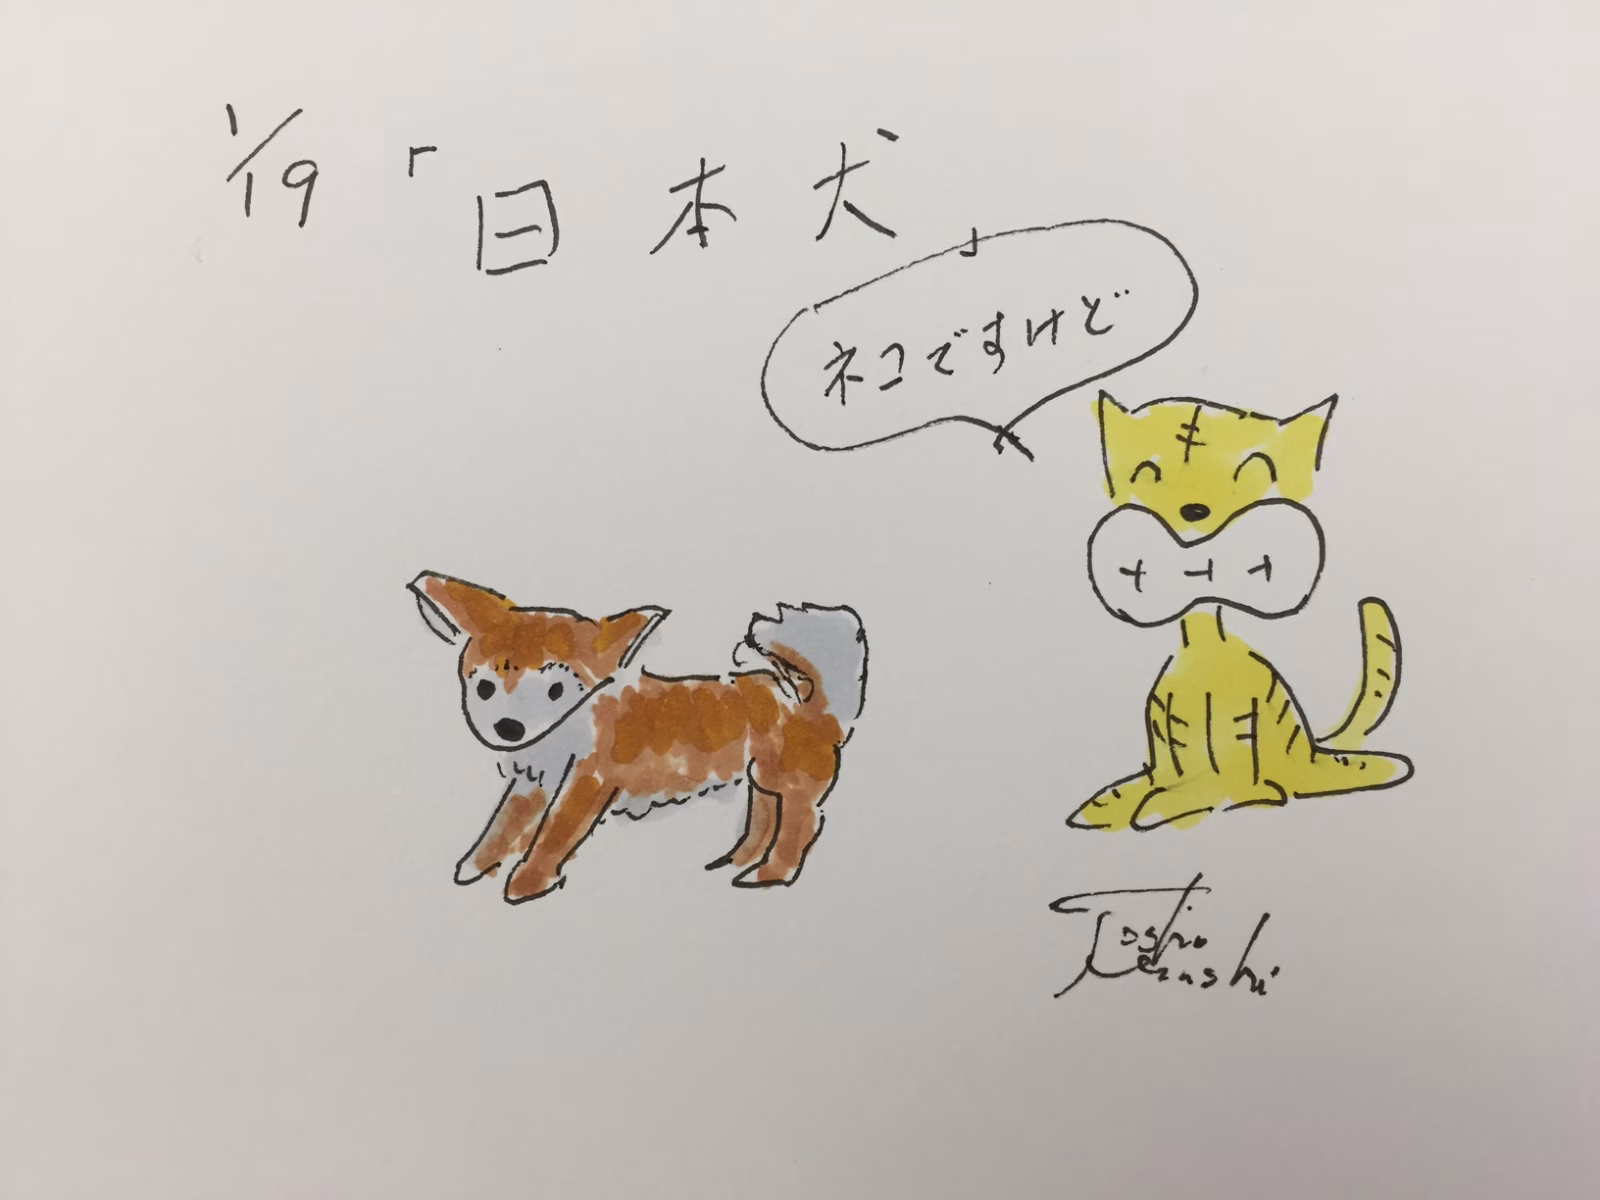 1/19 「日本犬」
ネコですけど
Toshio Tezashi